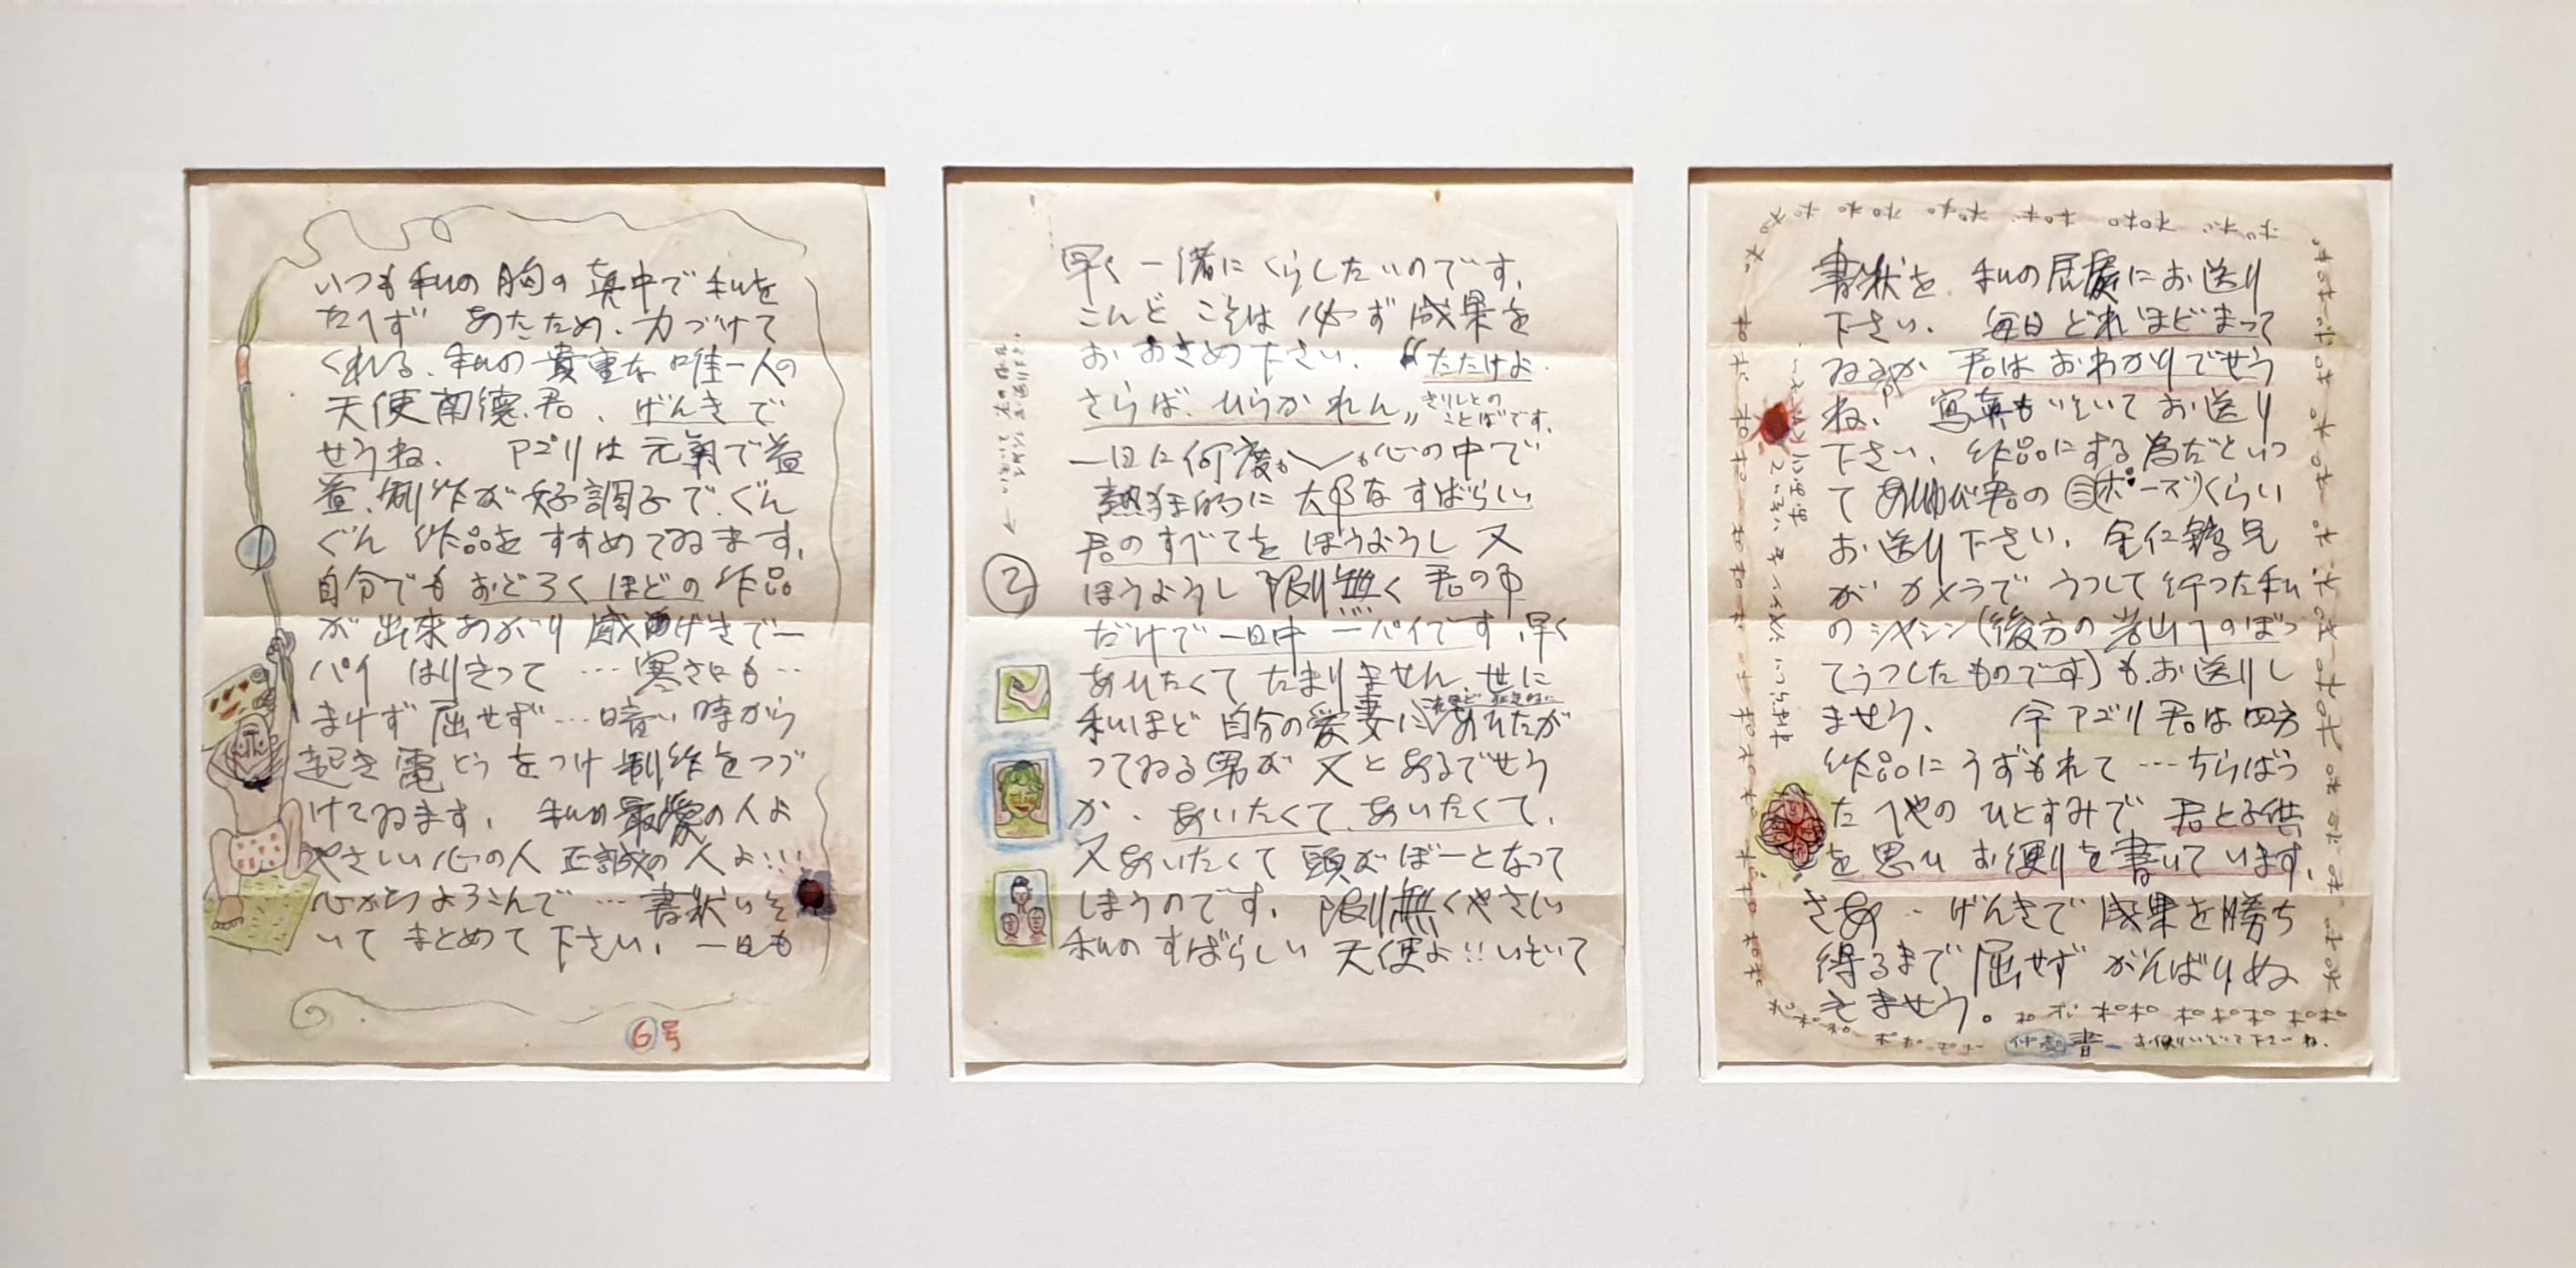 いつも私の胸の真中で私を
たへず あたため、力づけて
くれる、私の貴重な唯一人の
天使南徳君、げんきで
せうね、 アゴリは元氣で益
益、制作が好調子で、ぐん
ぐん 作品を すすめてゐます、
自分でも おどろく ほどの 作品
が 出来あがり 感げきで一
パイ はりきって … 寒さにも …
まけず 屈せず … 暗い 時から
起き 電とうをつけ 制作をつづ
けてゐます、 私の最愛の人よ
やさしい心の人 正誠の 人よ!!
心からよろこんで … 書状いそ
いて まとめて 下さい、 一日も
6号
早く 一緒に くらしたいのです、
こんど こそは 必ず 成果を
お おさめ 下さい、 “たたけよ
さらば、ひらかれん„
きりしとの
ことばです、
一日に何度も〱も心の中で
熱狂的に 大好な すばらしい
君のすべてを ほうようし 又
ほうようし 限り無く 君の事
だけで 一日中 一パイです、早く
あひたくて たまりません、世に
私ほど 自分の愛妻に あひたが
ってゐる男が 又と あるでせう
か、 あいたくて、あいたくて、
又あいたくて 頭が ぼーとなって
しまうのです、 限り無くやさしい
私の すばらしい 天使よ!! いそいて
②
書状を 私の居處にお送り
下さい、 毎日 どれ ほど まって
ゐるか 君は おわかりでせう
ね、 寫真も いそいて お送り
下さい、 作品にする為だといっ
て 君の 三(ポーズ)くらい
お送り下さい、 兄
が カメラで うつして 行った私
の シャシン(後方の 岩山へのぼっ
てうつしたものです)も、お送りし
ませう、 今 アゴリ君は 四方
作品に うずもれて … ちらばっ
た へやの ひとすみで 君と子供
を 思ひ お便りを 書いて います、
さあ … げんきで 成果を勝ち
得るまで 屈せず がんばりぬ
きませう。
お便りいそいで下さいね、